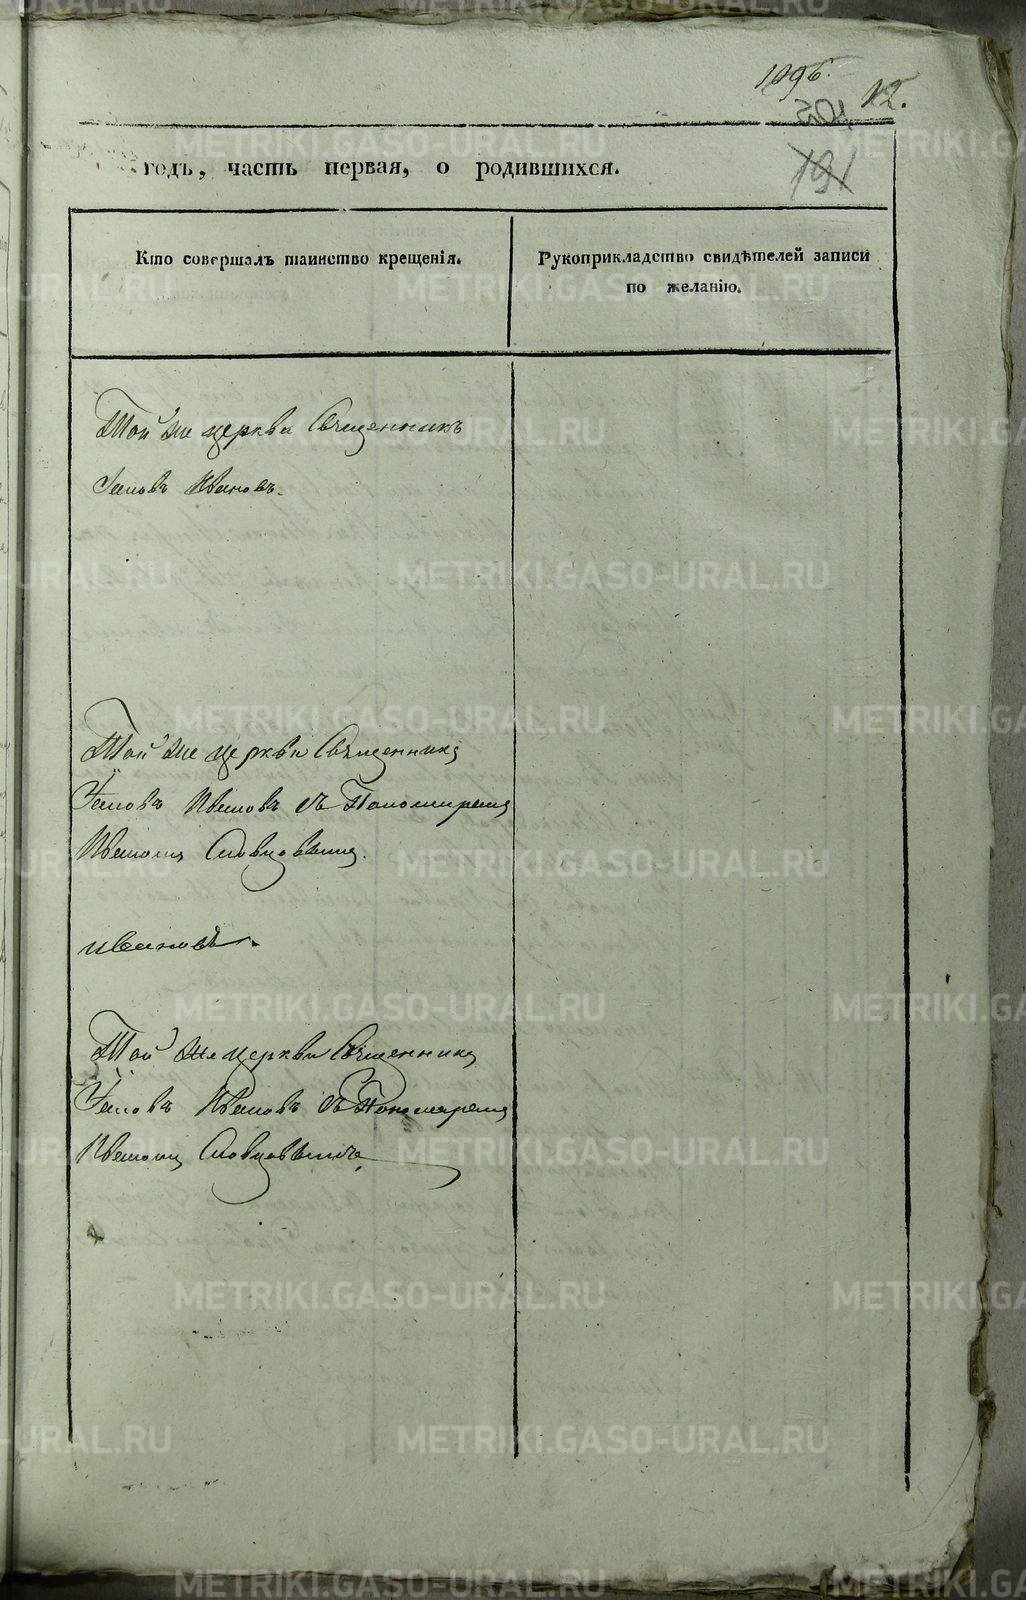 1096.
12.
105
191
годъ, часть первая, о родившихся.
Кто совершалъ таинство крещенія.
Рукоприкладство свидѣтелей записи
по желанію.
Той же церкви Священникъ
Іаковъ Ивановъ.
Той же церкви Священникъ
Іаковъ Ивановъ съ Пономаремъ
Иваномъ Словцовымъ.
Ивановъ.
Той же церкви Священникъ
Іаковъ Ивановъ съ Пономаремъ
Иваномъ Словцовымъ
METRIKI.GASO-URAL.RU